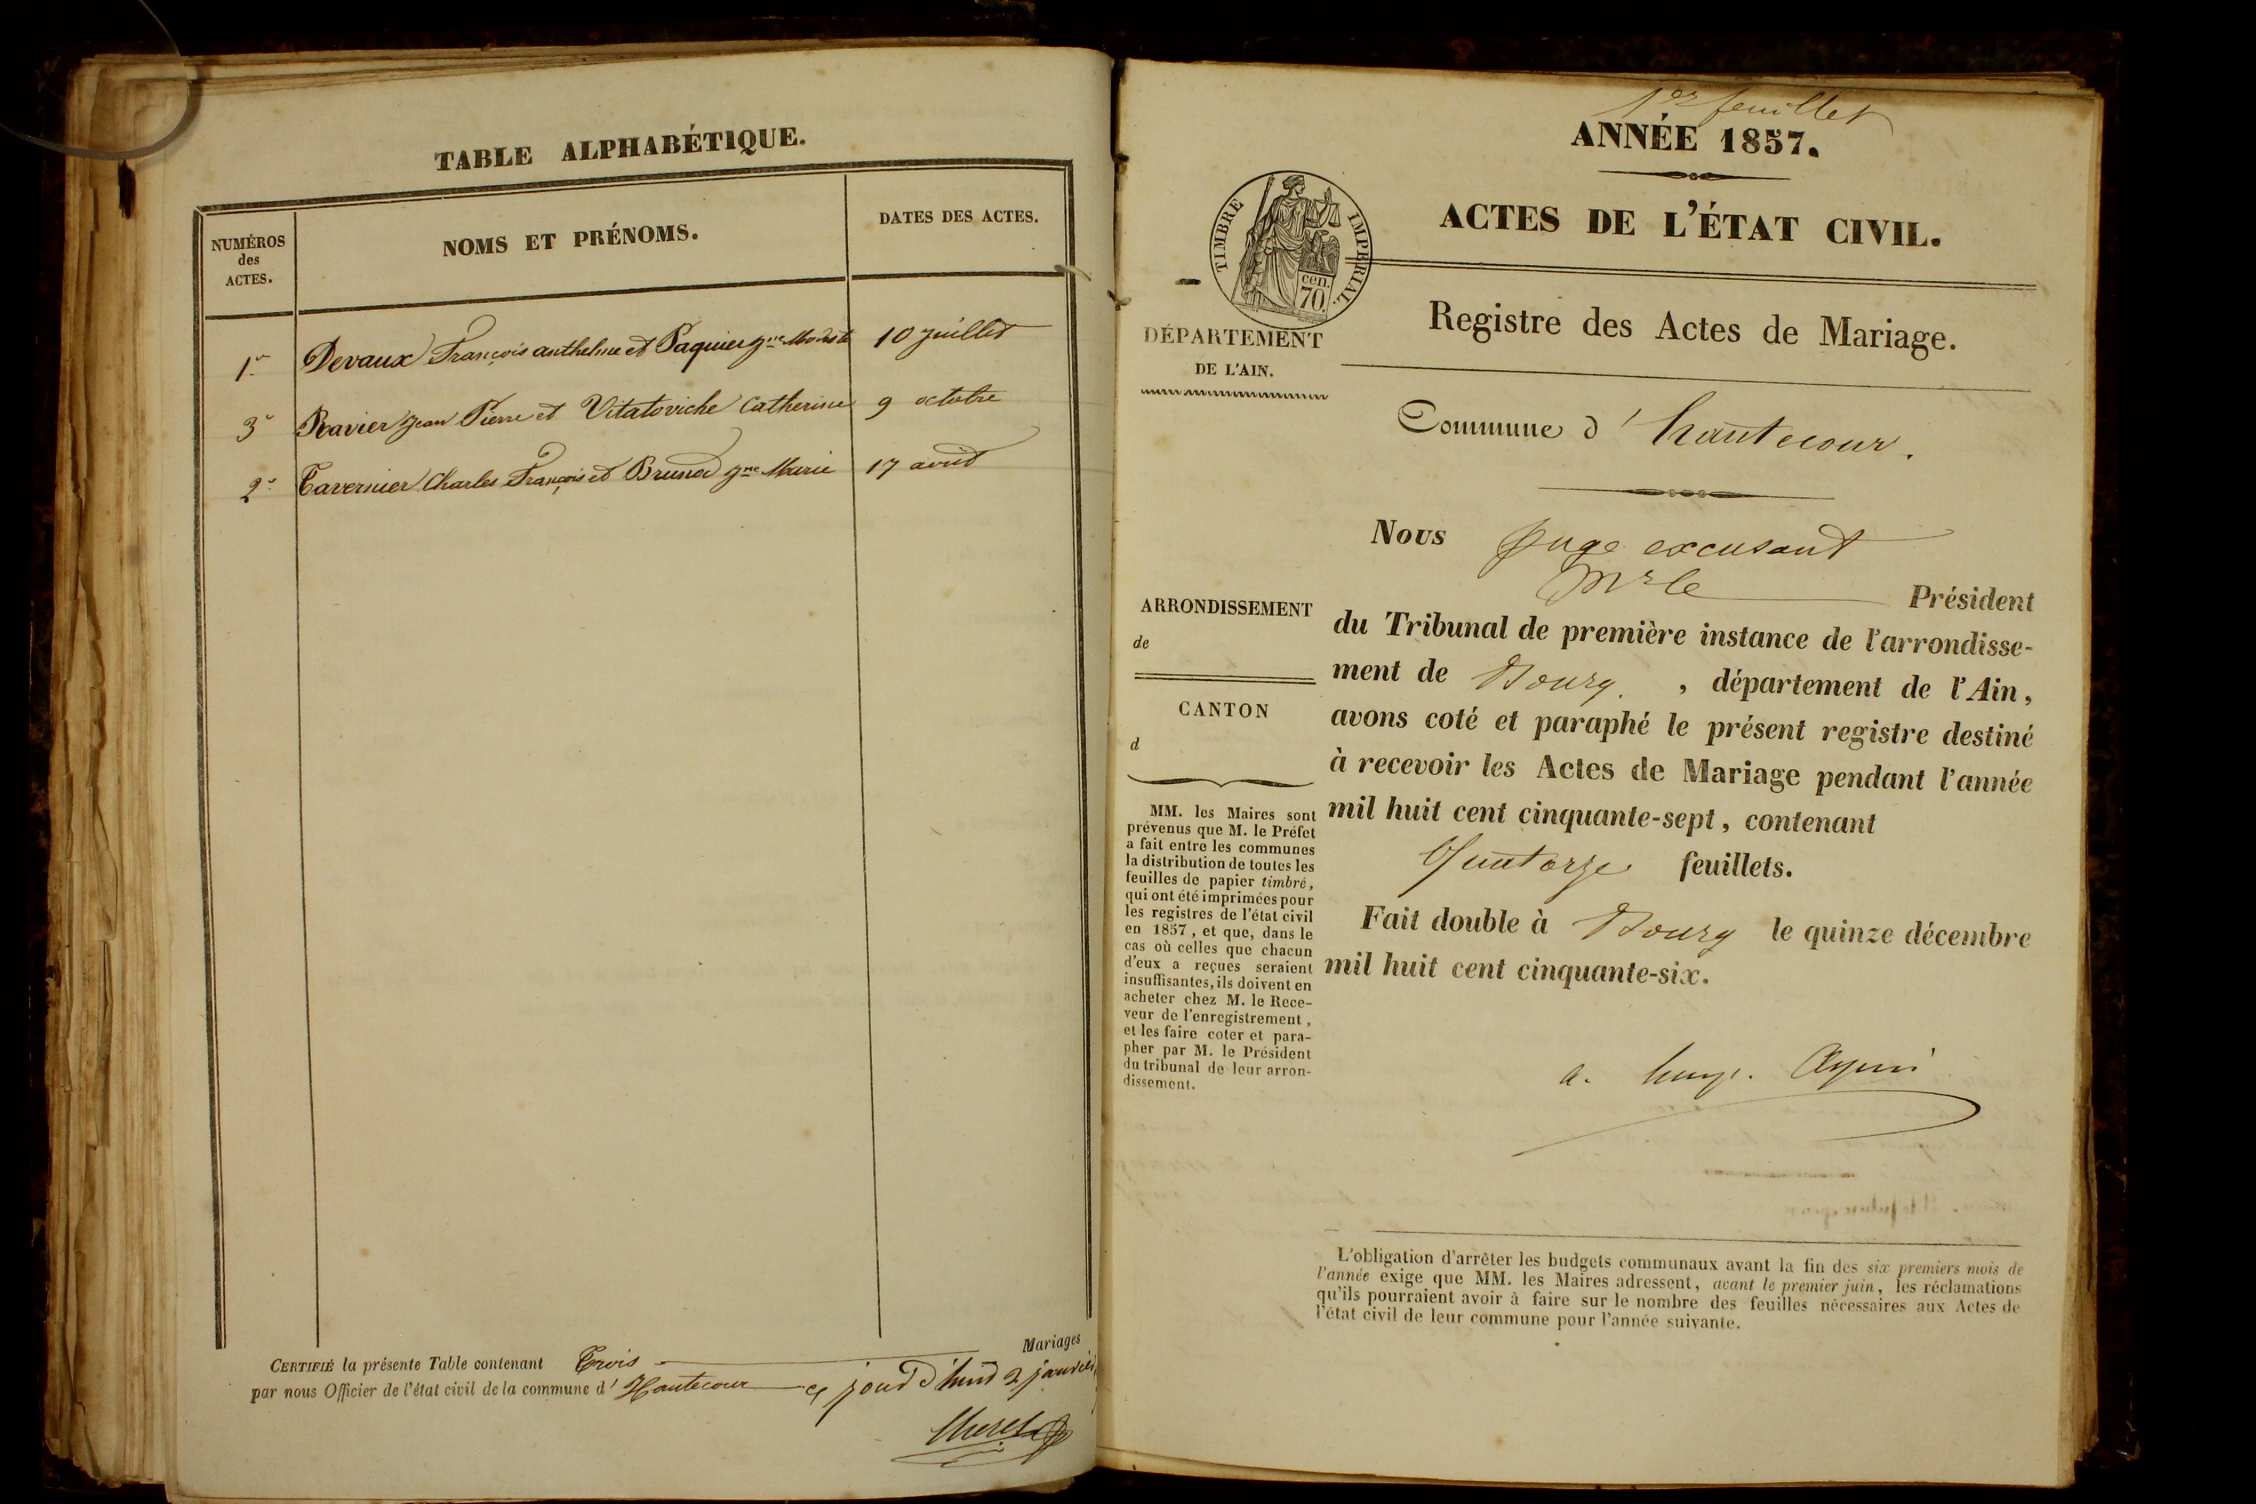 TABLE ALPHABÉTIQUE.
NUMÉROS
des
ACTES.
NOMS ET PRÉNOMS.
DATES DES ACTES.
1 Devaux François anthelme et Paquier Modeste 10 juillet
3 Ravier Jean Pierre et Vitatoviche Catherine 9 octobre
2 Tavernier Charles François et Brunet Marie 17 août
Mariages
CERTIFIÉ la présente Table contenant Trois
par nous Officier de l'état civil de la commune d' Hautecour 2 janvier
1er feuillet
ANNÉE 1857.
ACTES DE L'ÉTAT CIVIL.
TIMBRE IMPÉRIAL.
cen.
70.
DÉPARTEMENT
DE L'AIN.
Registre des Actes de Mariage.
Commune d' hautecour.
Nous Juge excusant
Mr le Président
ARRONDISSEMENT
de
CANTON
d
du Tribunal de première instance de l'arrondisse-
ment de Bourg. , département de l'Ain,
avons coté et paraphé le présent registre destiné
à recevoir les Actes de Mariage pendant l'année
mil huit cent cinquante-sept, contenant
Quatorze feuillets.
Fait double à Bourg le quinze décembre
mil huit cent cinquante-six.
MM. les Maires sont
prévenus que M. le Préfet
a fait entre les communes
la distribution de toutes les
feuilles de papier timbré,
qui ont été imprimées pour
les registres de l'état civil
en 1857, et que, dans le
cas où celles que chacun
d'eux a reçues seraient
insuffisantes, ils doivent en
acheter chez M. le Rece-
veur de l'enregistrement,
et les faire coter et para-
pher par M. le Président
du tribunal de leur arron-
dissement.
L'obligation d'arrêter les budgets communaux avant la fin des six premiers mois de
l'année exige que MM. les Maires adressent, avant le premier juin, les réclamations
qu'ils pourraient avoir à faire sur le nombre des feuilles nécessaires aux Actes de
l'état civil de leur commune pour l'année suivante.